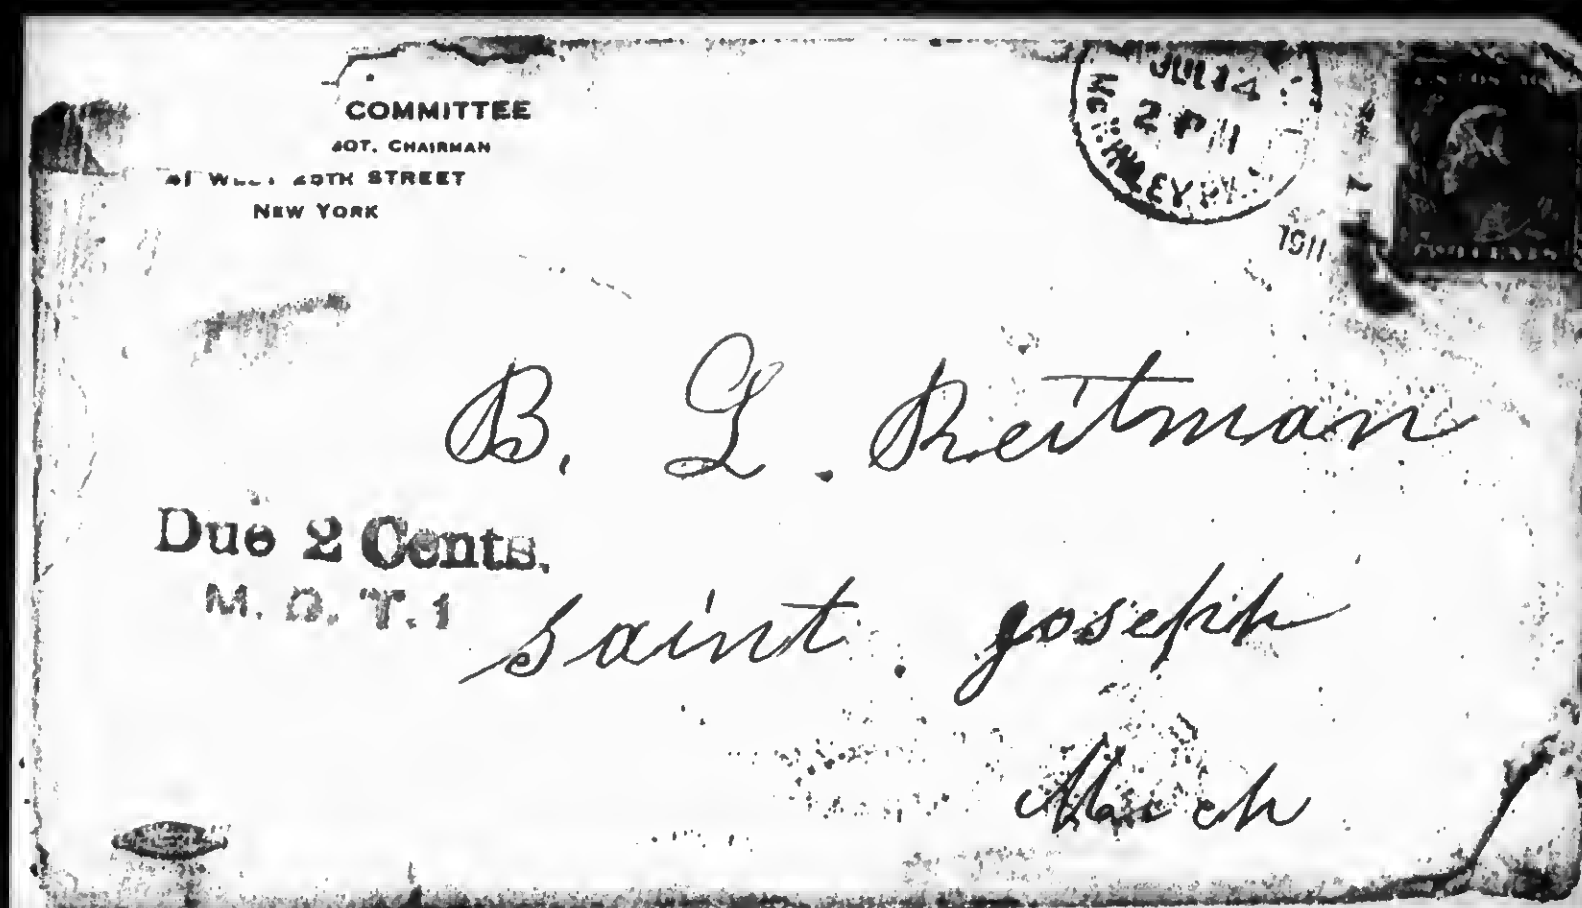 COMMITTEE
CHAIRMAN
STREET
NEW YORK
JUL 14
2 P
1911
TWO CENTS
B. L. Reitman
Due 2 Cents.
M. O. T. 1
Saint. Joseph
Mich